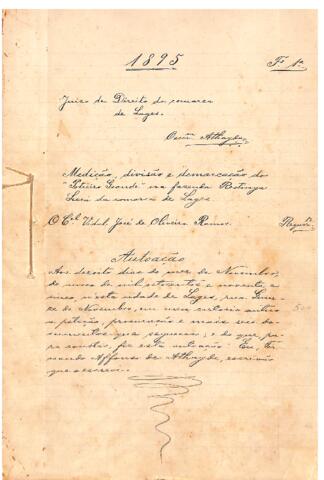 1895 Fª 1ª
Juizo de Direito da comarca
de Lages.
Escm Athayde
Medição, divisão e demarcação do
"Potreiro Grande" na fazenda
da comarca de Lages
O Cel Vidal José de Oliveira Ramos. Requete
Autoação
Aos dezoito dias do mez de Novembro,
do anno de mil oitocentos e noventa e
cinco, n'esta cidade de Lages, rua Quin-
ze de Novembro, em meu cartorio autuo
a petição, procuração e mais
documentos que seguem; e do que, pa-
ra constar, fiz esta autuação. Eu, Fer-
nando Affonso de Athayde, escrivão
que o escrevi.